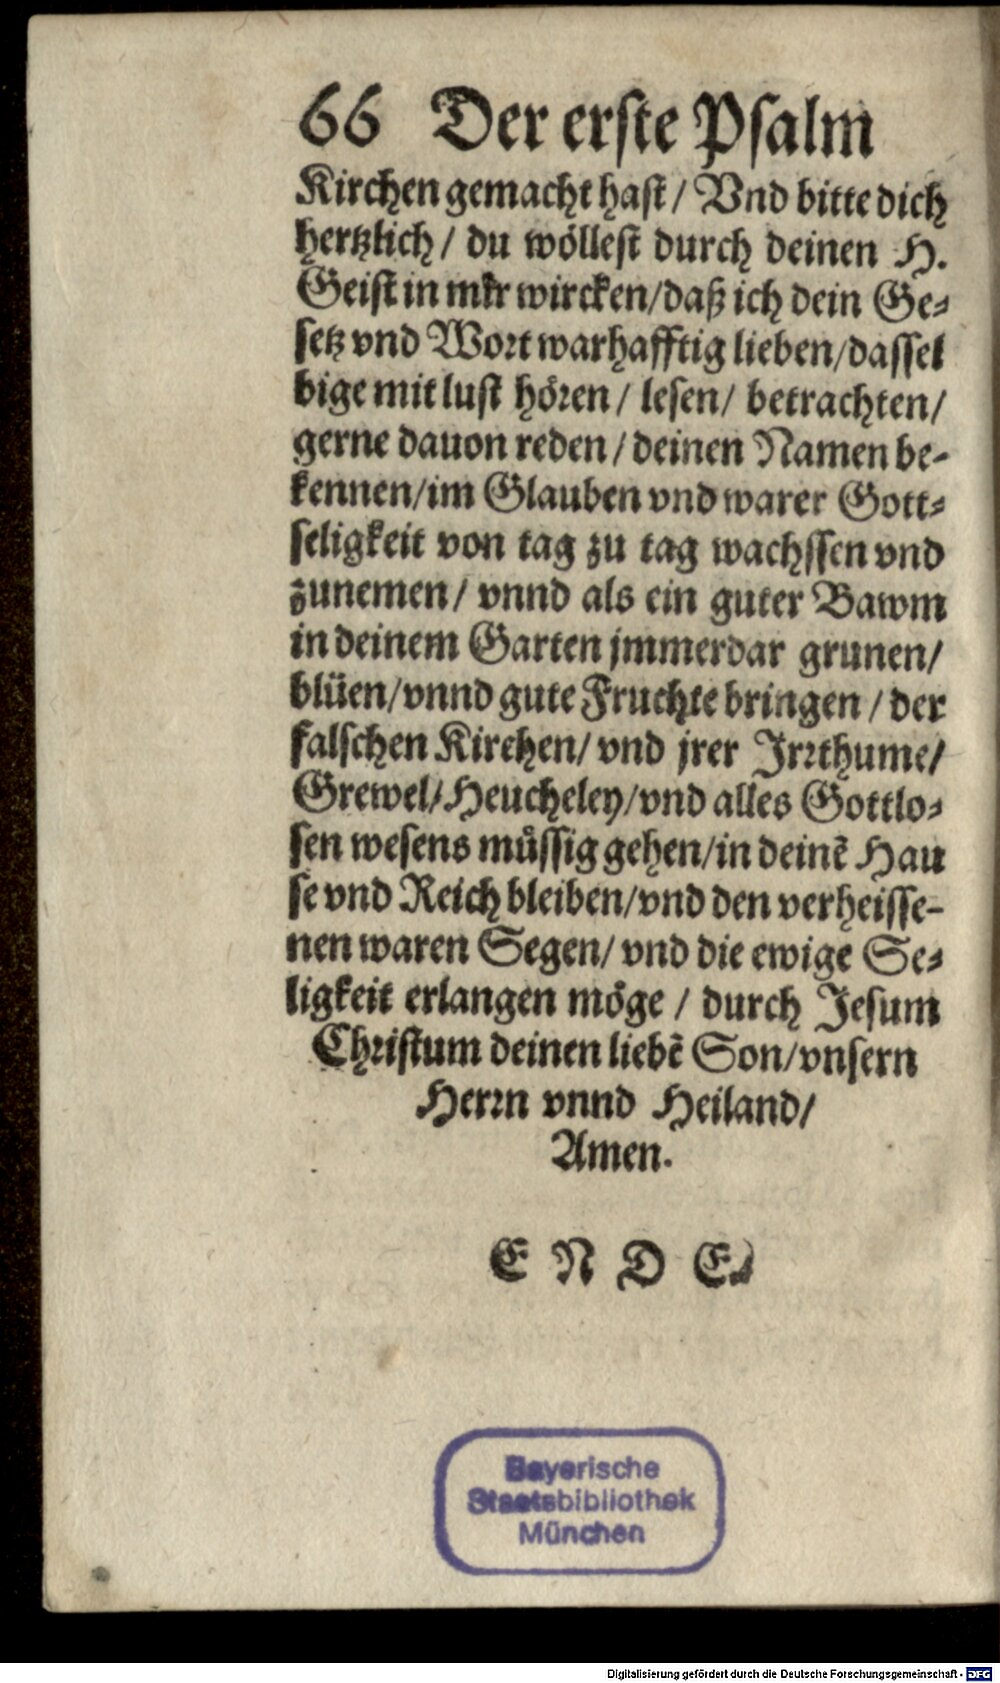 66 Der erste Psalm
Kirchen gemacht hast / Vnd bitte dich
hertzlich / du wöllest durch deinen H.
Geist in mir wircken/daß ich dein Ge-
setz vnd Wort warhafftig lieben/dassel
bige mit lust hören / lesen/ betrachten/
gerne dauon reden / deinen Namen be-
kennen/im Glauben vnd warer Gott-
seligkeit von tag zu tag wachssen vnd
zunemen / vnnd als ein guter Bawm
in deinem Garten jmmerdar grunen/
blüen/vnnd gute Fruchte bringen / der
falschen Kirchen/ vnd jrer Irrthume/
Grewel/Heucheley/vnd alles Gottlo-
sen wesens müssig gehen/in deinẽ Hau
se vnd Reich bleiben/vnd den verheisse-
nen waren Segen/ vnd die ewige Se-
ligkeit erlangen möge / durch Jesum
Christum deinen liebẽ Son/vnsern
Herrn vnnd Heiland/
Amen.
E N D E.
Bayerische
Staatsbibliothek
München
Digitalisierung gefördert durch die Deutsche Forschungsgemeinschaft - DFG